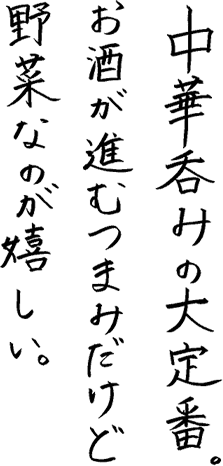 中華呑みの大定番。
お酒が進むつまみだけど
野菜なのが嬉しい。